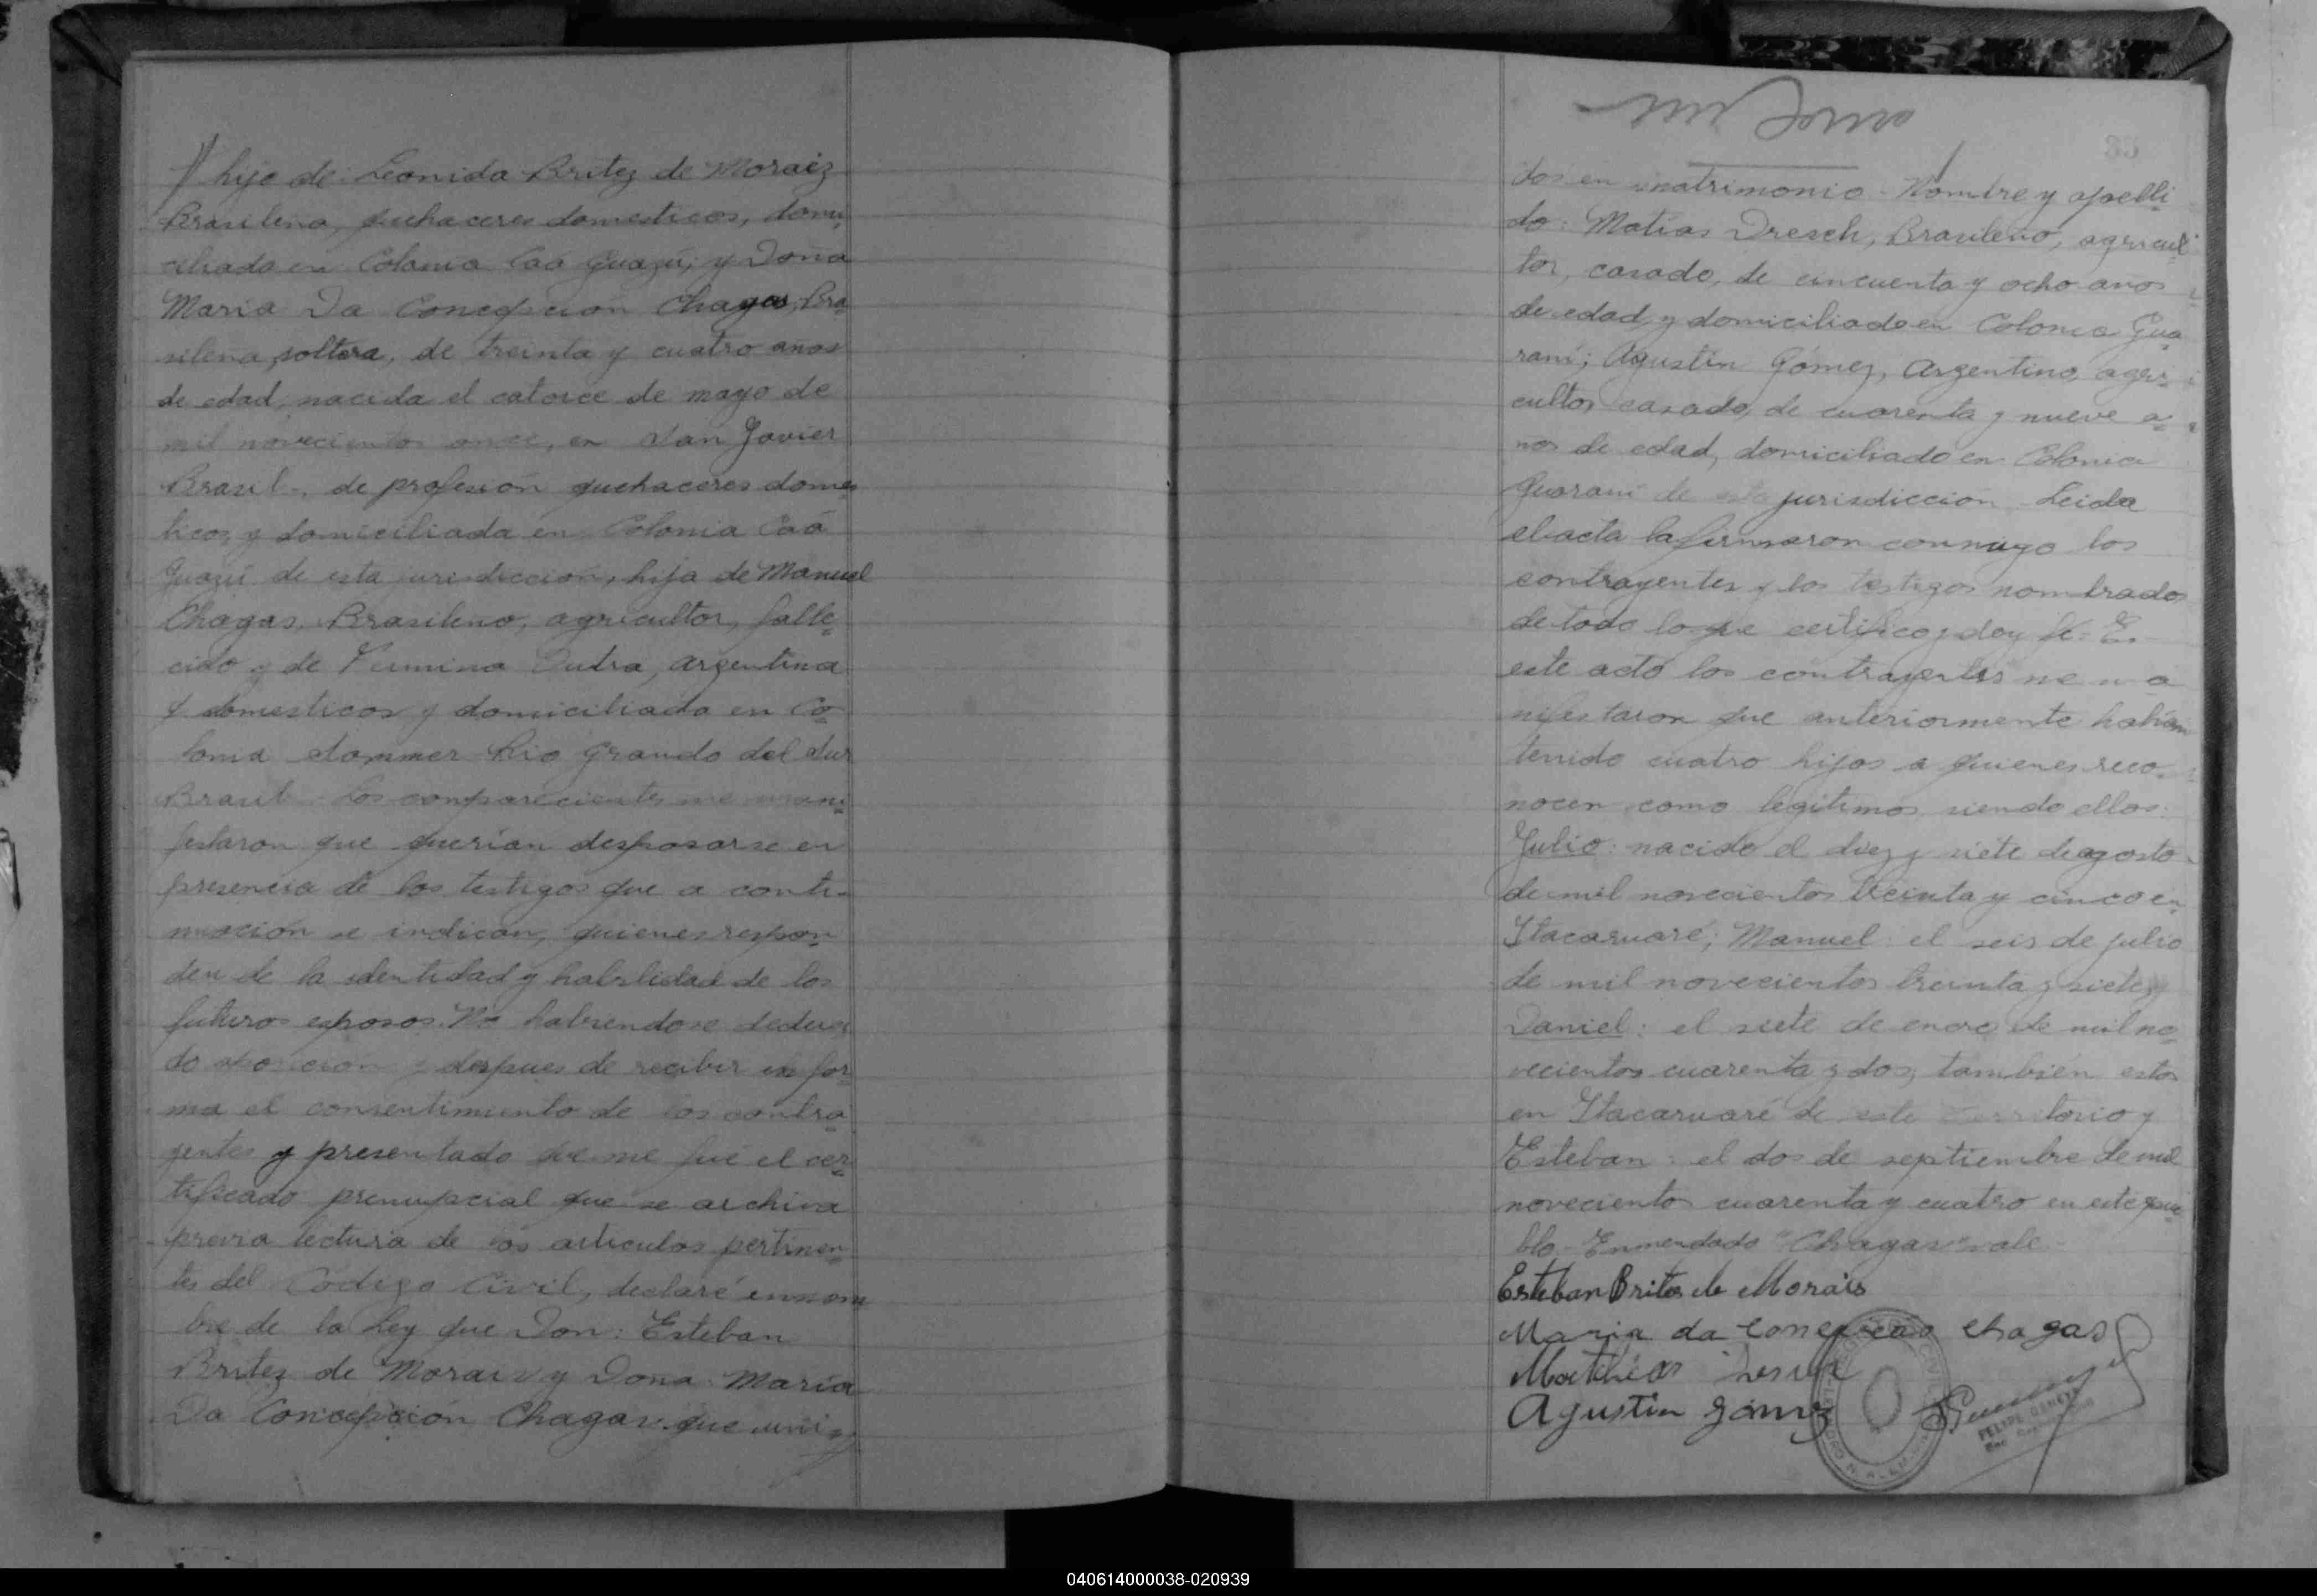 hijo de: Leonida Britez de Moraiz
Brasilena, quehaceres domesticos, domi
ciliada en Colonia Caá Guazú; y Doña
Maria Da Concepción Chagas, Bra
sileña, soltera, de treinta y cuatro años
de edad, nacida el catorce de mayo de
mil novecientos once, en San Javier
Brasil-, de profesión quehaceres domes
ticos, y domiciliada en Colonia Caá
Guazú de esta jurisdicción, hija de Manuel
Chagas, Brasileño, agricultor, falle
cido y de Dutra, argentina
q domesticos y domiciliada en Co
lonia Sommer Rio Grando del Sur
Brasil- Los comparecientes me mani
festaron que querían desposarse en
presencia de los testigos que a conti-
nuación se indican, quienes respon
den de la identidad y habilidad de los
futuros esposos. No habiendose deduci
do oposición y despues de recibir en for
ma el consentimiento de los contra
yentes y presentado que me fué el cer
tificado prenupcial que se archiva
previa lectura de los articulos pertinen
tes del Código Civil, declaré en nom
bre de la Ley que Don: Esteban
Britez de Moraiz y Doña Maria
Da Concepción Chagas que uni-
33
dos en matrimonio- Nombre y apelli
do: Matias Dresch, Brasileño, agricul
tor, casado, de cincuenta y ocho años
de edad y domiciliado en Colonia Gua
raní; Agustin Gómez, Argentino, agri-
cultor casado, de cuarenta y nueve a
nos de edad, domiciliado en Colonia
Guarani de esta jurisdicción Leida
el acta la firmaron conmigo los
contrayentes y los testigos nombrados
de todo lo que certifico y doy fé- En
este acto los contrayentes me ma
nifestaron que anteriormente habian
tenido cuatro hijos a quienes reco-
nocen como legitimos siendo ellos:
Julio: nacido el diez y siete de agosto
de mil novecientos treinta y cinco en
Itacaruaré; Manuel: el seis de julio
de mil novecientos treinta y siete,
Daniel: el siete de enero de mil no
vecientos cuarenta y dos, también estos
en Itacaruaré de este territorio y
Esteban: el dos de septiembre de mil
novecientos cuarenta y cuatro en este pue
blo- Enmendado "Chagas" vale-
Esteban Brites de Morais
Maria da Conceicao chagas
Mathias
Agustin Gómez
FELIPE
040614000038-020939